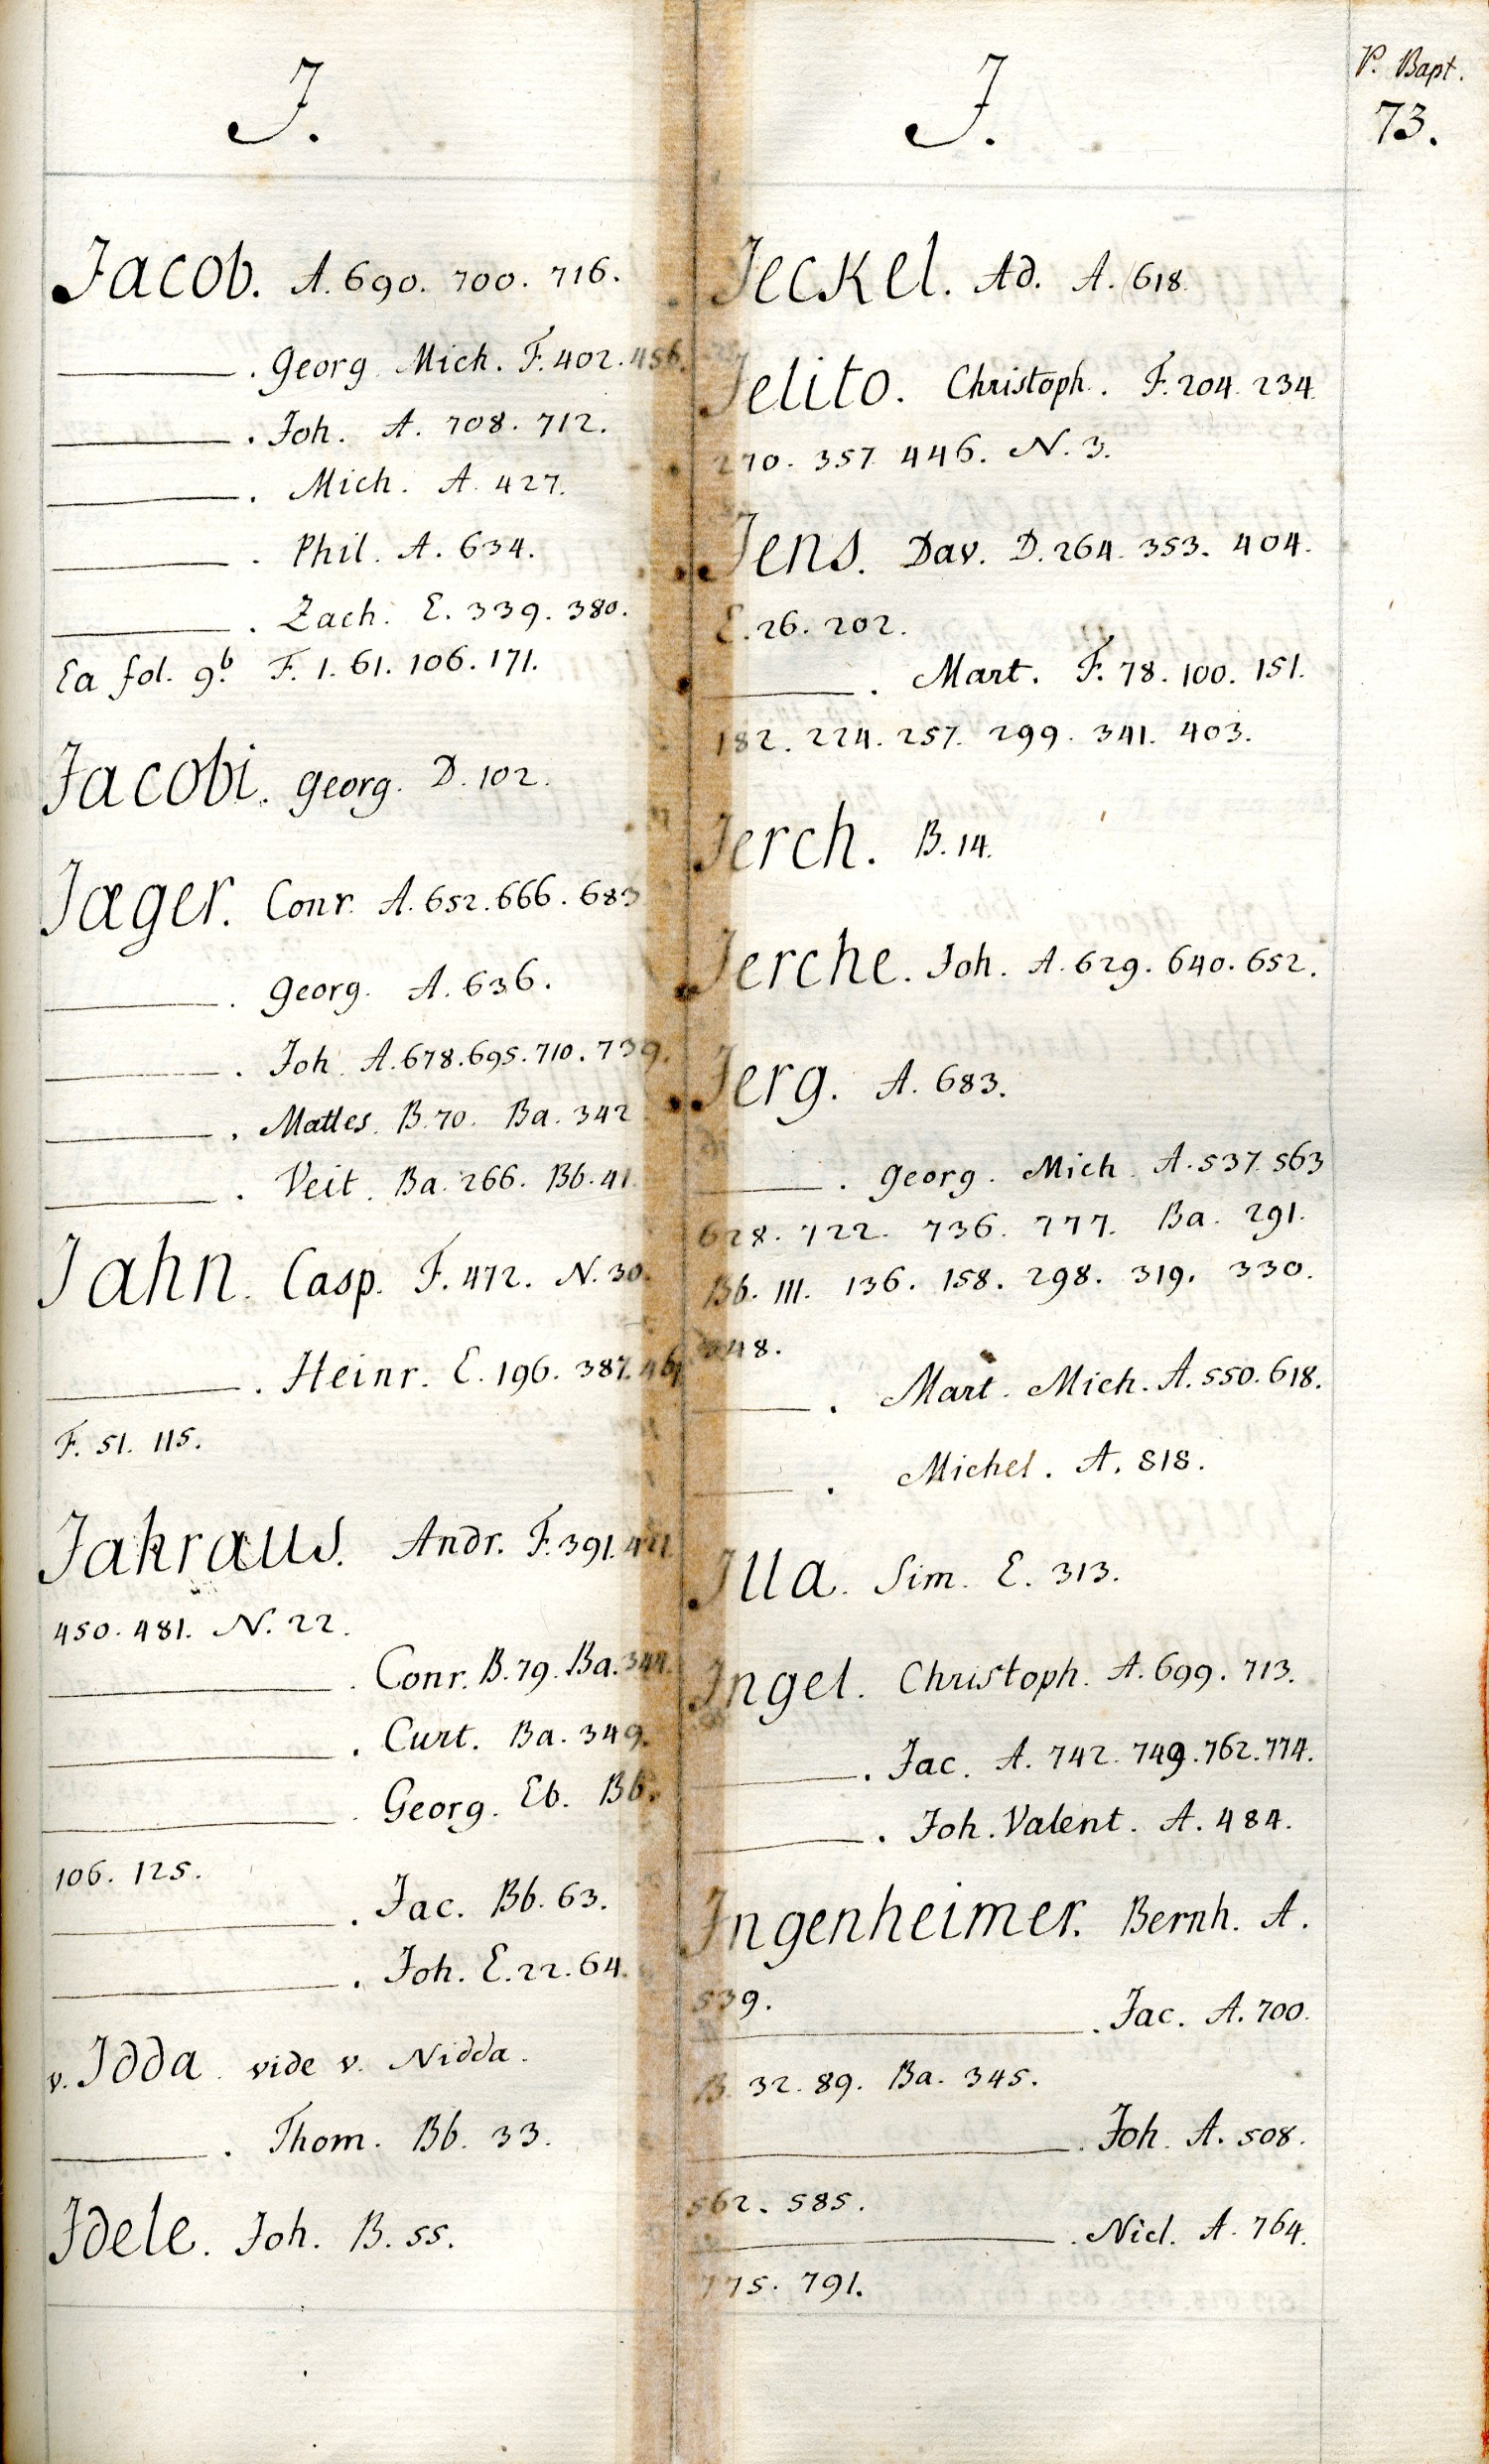 J.
Jacob. A. 690. 700. 716.
———. Georg Mich. F. 402. 456.
———. Joh. A. 708. 712.
———. Mich. A. 427.
———. Phil. A. 634.
———. Zach. E. 339. 380.
Ea fol. 9.b F. 1. 61. 106. 171.
Jacobi. Georg. D. 102.
Jæger. Conr. A. 652. 666. 683
———. Georg. A. 636.
———. Joh. A. 678. 695. 710. 739.
———. Mattes. B. 70. Ba. 342
———. Veit. Ba. 266. Bb. 41.
Jahn. Casp. F. 472. N. 30.
———. Heinr. E. 196. 387.
F. 51. 115.
Jahraus. Andr. F. 391.
450. 481. N. 22.
———. Conr. B. 79. Ba. 344.
———. Curt. Ba. 349.
———. Georg. Eb. Bb.
106. 125.
———. Jac. Bb. 63.
———. Joh. E. 22. 64.
v. Idda. vide v. Nidda.
———. Thom. Bb. 33.
Idele. Joh. B. 55.
J.
Jeckel. Ad. A. 618.
Jelito. Christoph. F. 204. 234.
270. 357. 446. N. 3.
Jens. Dav. D. 264. 353. 404.
E. 26. 202.
———. Mart. F. 78. 100. 151.
182. 224. 257. 299. 341. 403.
Jerch. B. 14.
Jerche. Joh. A. 629. 640. 652.
Jerg. A. 683.
———. Georg. Mich. A. 537. 563
628. 722. 736. 777. Ba. 291.
Bb. 111. 136. 158. 298. 319. 330.
348.
———. Mart. Mich. A. 550. 618.
———. Michel. A. 818.
Illa. Sim. E. 313.
Ingel. Christoph. A. 699. 713.
———. Jac. A. 742. 749. 762. 774.
———. Joh. Valent. A. 484.
Ingenheimer. Bernh. A.
539.
———. Jac. A. 700.
B. 32. 89. Ba. 345.
———. Joh. A. 508.
562. 585.
———. Nicl. A. 764.
775. 791.
P. Bapt.
73.